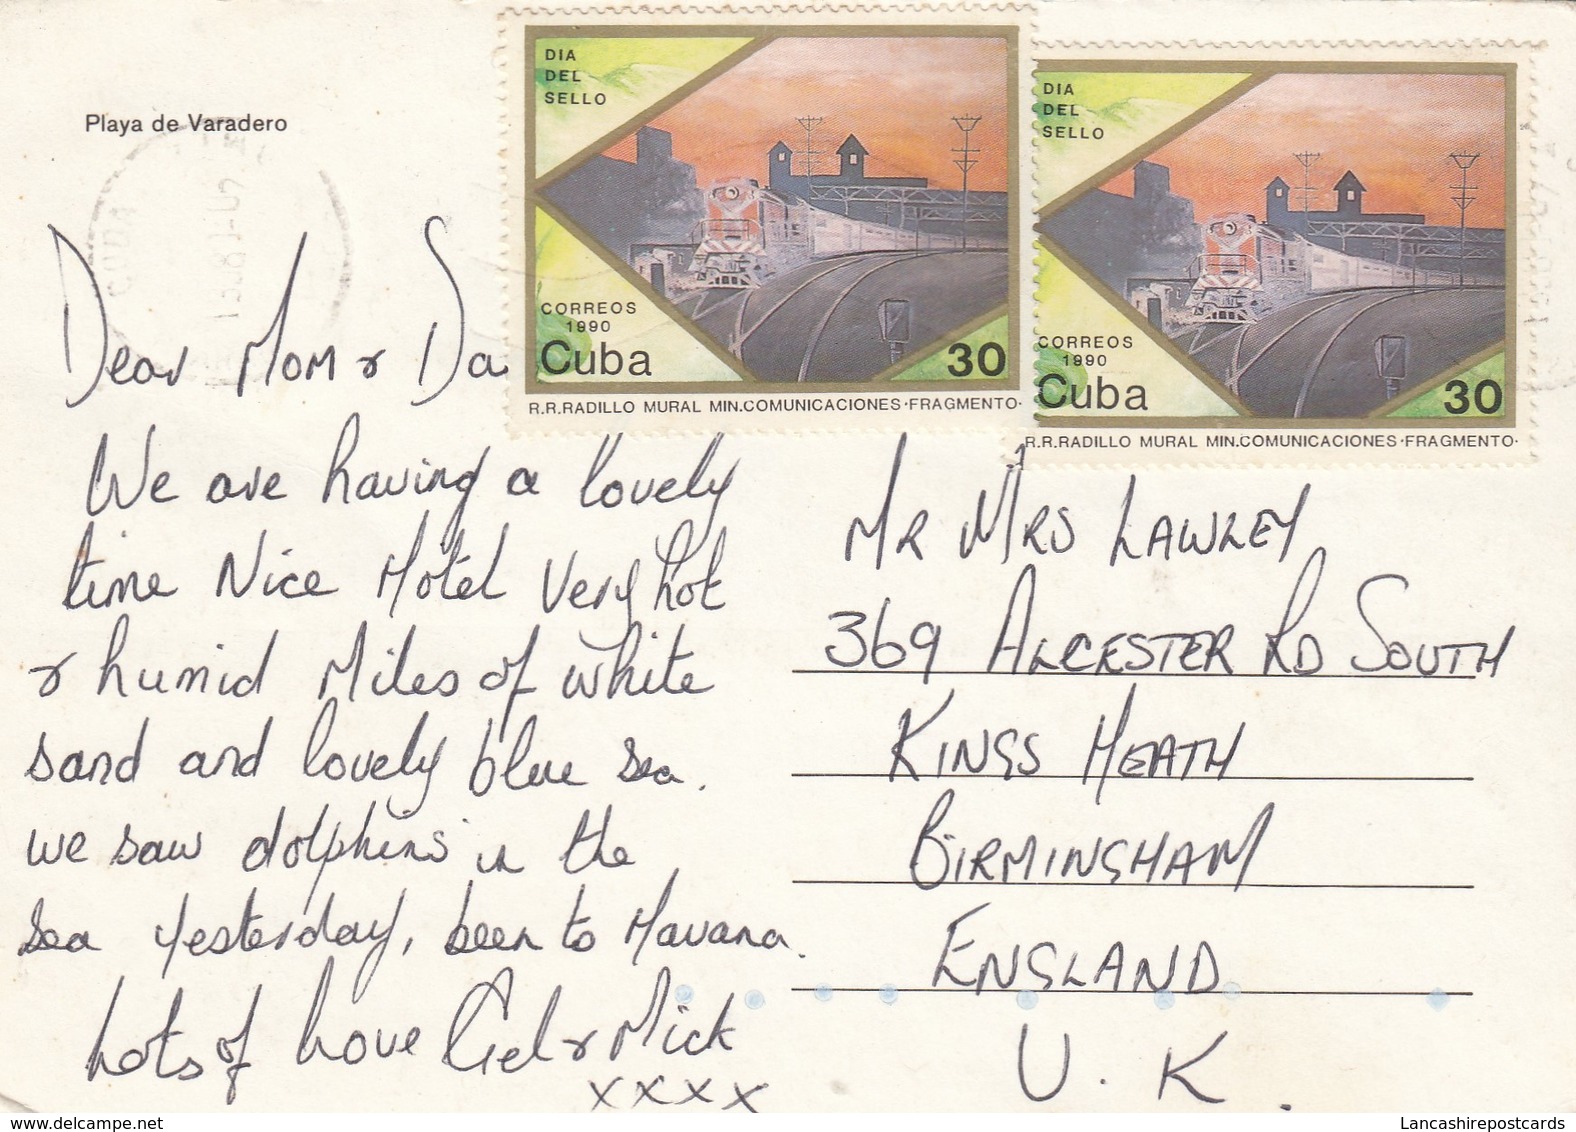 Playa de Varadero
DIA
DEL
SELLO
CORREOS
1990
Cuba
30
R.R.RADILLO MURAL MIN.COMUNICACIONES·FRAGMENTO·
DIA
DEL
SELLO
CORREOS
1990
Cuba
30
R.R.RADILLO MURAL MIN.COMUNICACIONES·FRAGMENTO·
CUBA
Dear Mom & Da
We are having a lovely
time Nice Hotel Very hot
& humid Miles of white
sand and lovely blue sea.
we saw dolphins in the
sea yesterday, been to Havana.
Lots of Love & Mick
xxxx
MR MRS LAWLEY
369 ALCESTER RD SOUTH
KINGS HEATH
BIRMINGHAM
ENGLAND
U.K.
Lancashirepostcards